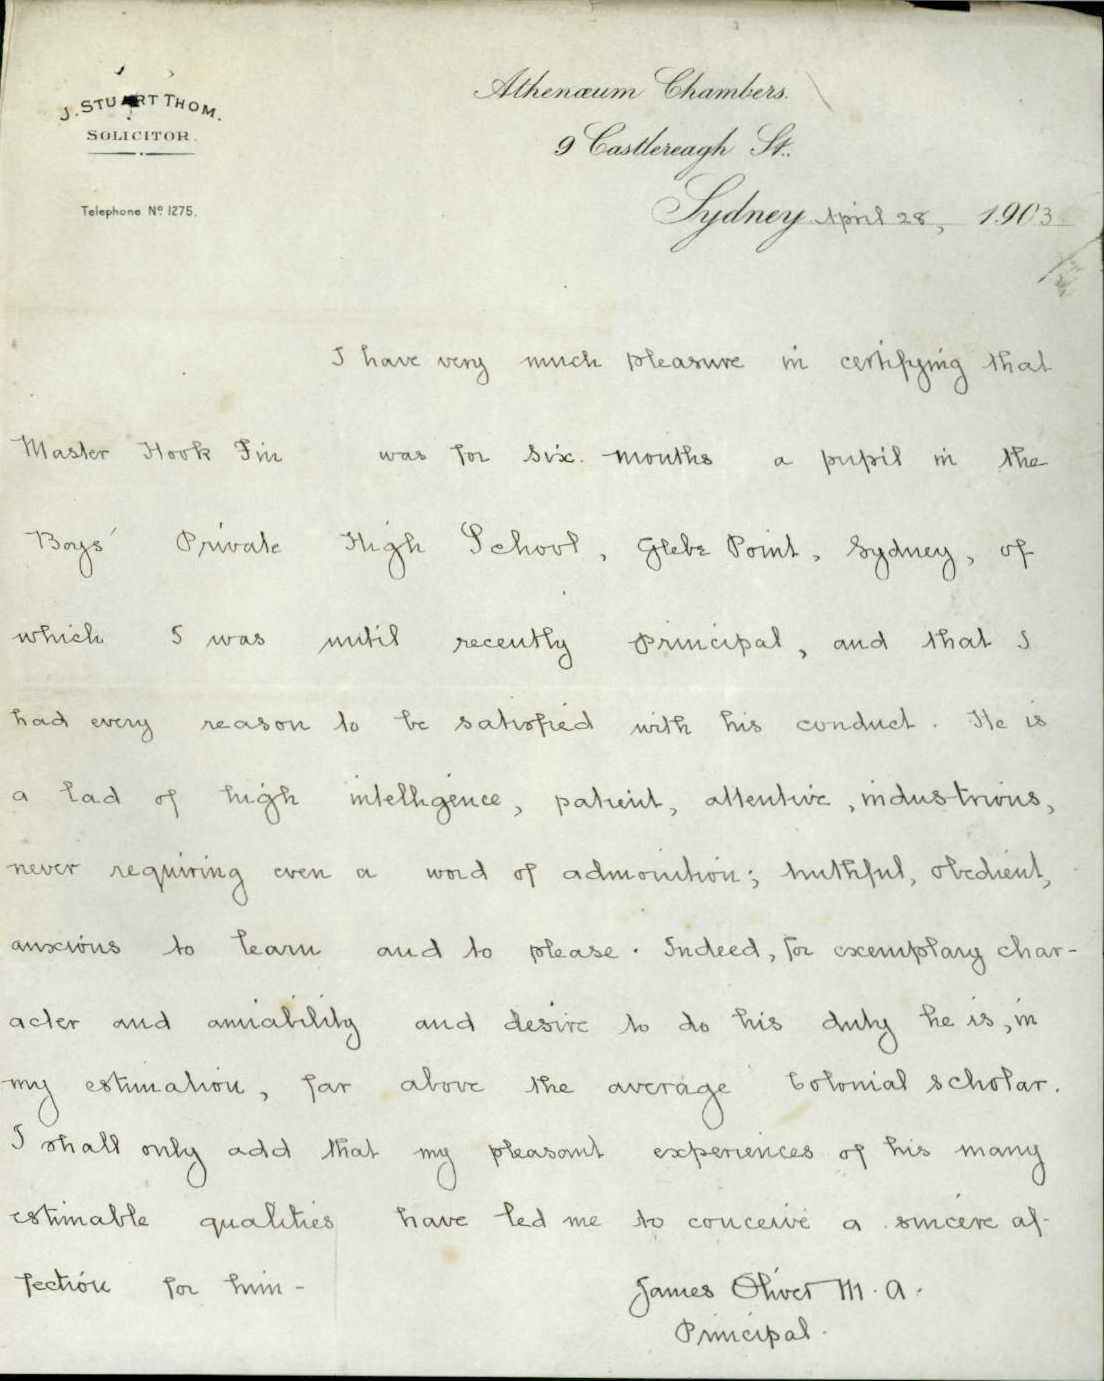 J. STUART THOM.
SOLICITOR.
Telephone Nº 1275.
Athenæum Chambers.
9 Castlereagh St.
Sydney April 28, 1903
I have very much pleasure in certifying that
Master Hook Fin was for six months a pupil in the
Boys' Private High School, Glebe Point, Sydney, of
which I was until recently principal, and that I
had every reason to be satisfied with his conduct. He is
a lad of high intelligence, patient, attentive, industrious,
never requiring even a word of admonition; truthful, obedient,
anxious to learn and to please. Indeed, for exemplary char-
acter and amiability and desire to do his duty he is, in
my estimation, far above the average Colonial scholar.
I shall only add that my pleasant experiences of his many
estimable qualities have led me to conceive a sincere af-
fection for him -
James Oliver M.A.
Principal.